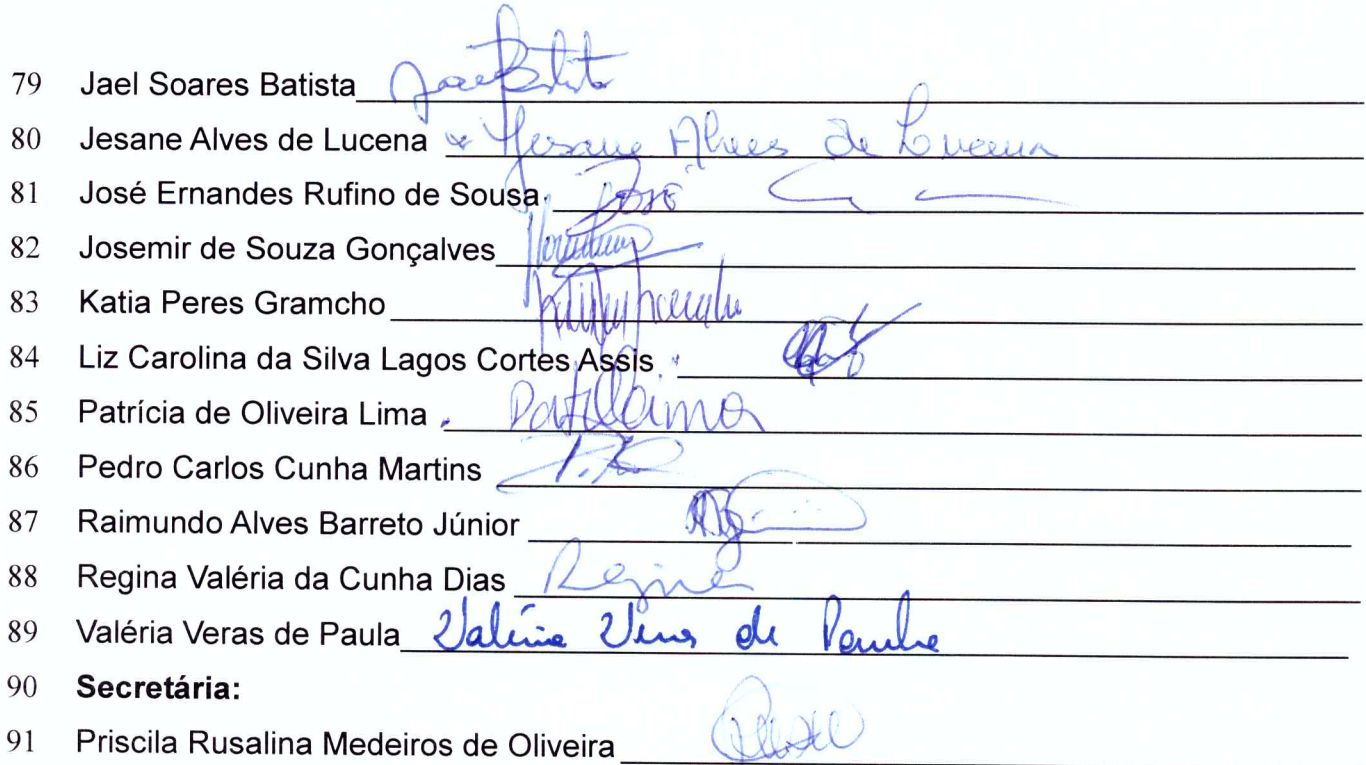 79 Jael Soares Batista
80 Jesane Alves de Lucena Jesane Alves de Lucena
81 José Ernandes Rufino de Sousa José
82 Josemir de Souza Gonçalves
83 Katia Peres Gramcho
84 Liz Carolina da Silva Lagos Cortes Assis
85 Patrícia de Oliveira Lima
86 Pedro Carlos Cunha Martins
87 Raimundo Alves Barreto Júnior
88 Regina Valéria da Cunha Dias Regina
89 Valéria Veras de Paula Valéria Veras de Paula
90 Secretária:
91 Priscila Rusalina Medeiros de Oliveira